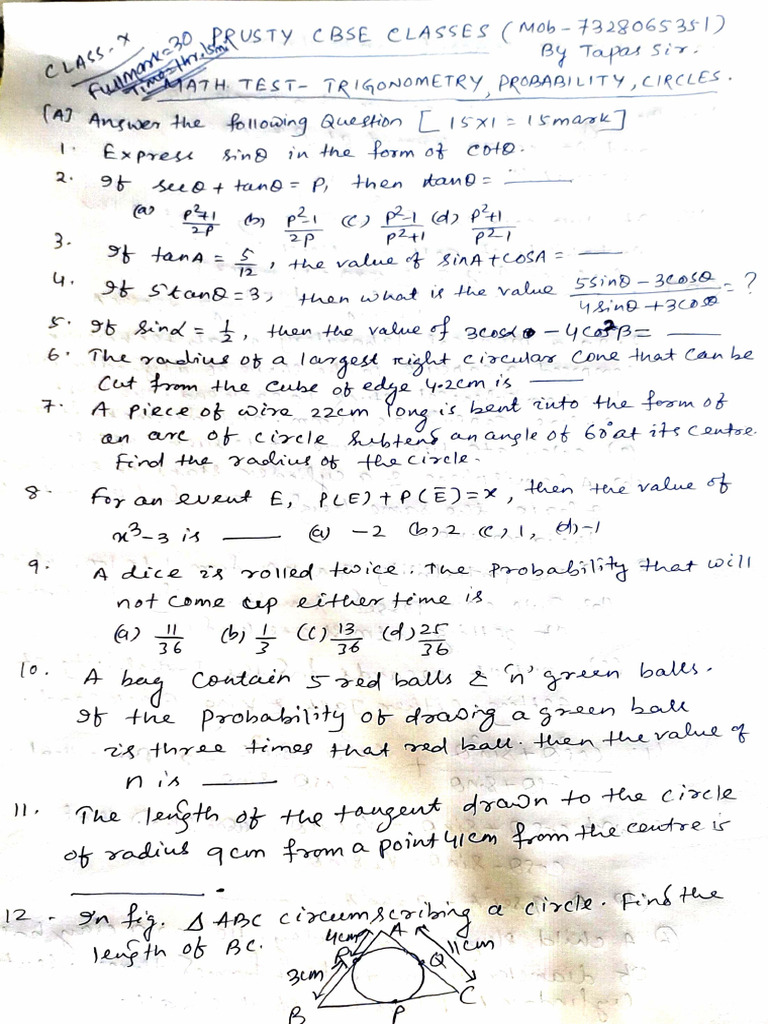 PRUSTY CBSE CLASSES (Mob-7328065351)
By Tapas Sir.
CLASS-X
Fullmark=30
Time=1hr.15mi
MATH TEST- TRIGONOMETRY, PROBABILITY, CIRCLES.
[A] Answer the following Question [15x1=15mark]
1. Express sinθ in the form of cotθ.
2. If secθ+tanθ=P, then tanθ= ____
(a) P²+1/2P (b) P²-1/2P (c) P²-1/P²+1 (d) P²+1/P²-1
3. If tanA = 5/12, the value of sinA+cosA = ____
4. If 5tanθ=3, then what is the value 5sinθ-3cosθ/4sinθ+3cosθ = ?
5. If sinα=1/2, then the value of 3cosα - 4cos²β= ____
6. The radius of a largest right circular cone that can be
cut from the cube of edge 4.2cm is ____
7. A piece of wire 22cm long is bent into the form of
an arc of circle subtens an angle of 60° at its centre.
Find the radius of the circle.
8. For an event E, P(E)+P(Ē)=x, then the value of
x³-3 is ____ (a) -2 (b) 2 (c) 1, (d) -1
9. A dice is rolled twice. The probability that will
not come up either time is
(a) 11/36 (b) 1/3 (c) 13/36 (d) 25/36
10. A bag contain 5 red balls & 'n' green balls.
If the probability of drawing a green ball
is three times that red ball. then the value of
n is ____
11. The length of the tangent drawn to the circle
of radius 9cm from a point 41cm from the centre is
____.
12. In fig. Δ ABC circumscribing a circle. Find the
length of BC.
4cm A 11cm
R Q
3cm
B P C